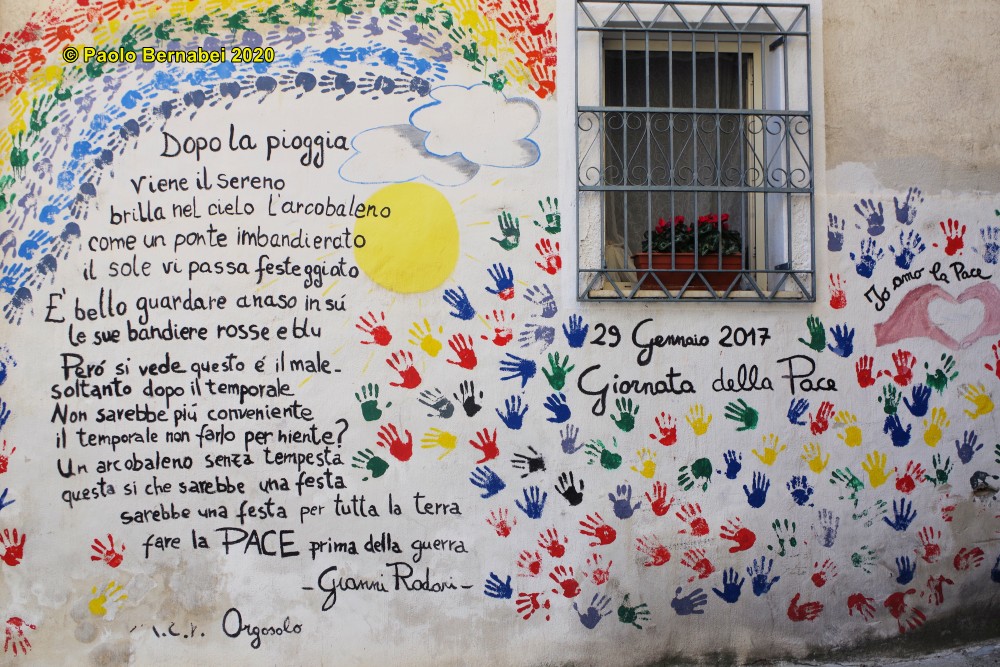 © Paolo Bernabei 2020
Dopo la pioggia
viene il sereno
brilla nel cielo l'arcobaleno
come un ponte imbandierato
il sole vi passa festeggiato
É bello guardare a naso in sú
le sue bandiere rosse e blu
Peró si vede questo é il male_
soltanto dopo il temporale
Non sarebbe piú conveniente
il temporale non farlo per niente?
Un arcobaleno senza tempesta
questa si che sarebbe una festa
sarebbe una festa per tutta la terra
fare la PACE prima della guerra
- Gianni Rodari -
Orgosolo
29 Gennaio 2017
Giornata della Pace
Io amo la Pace